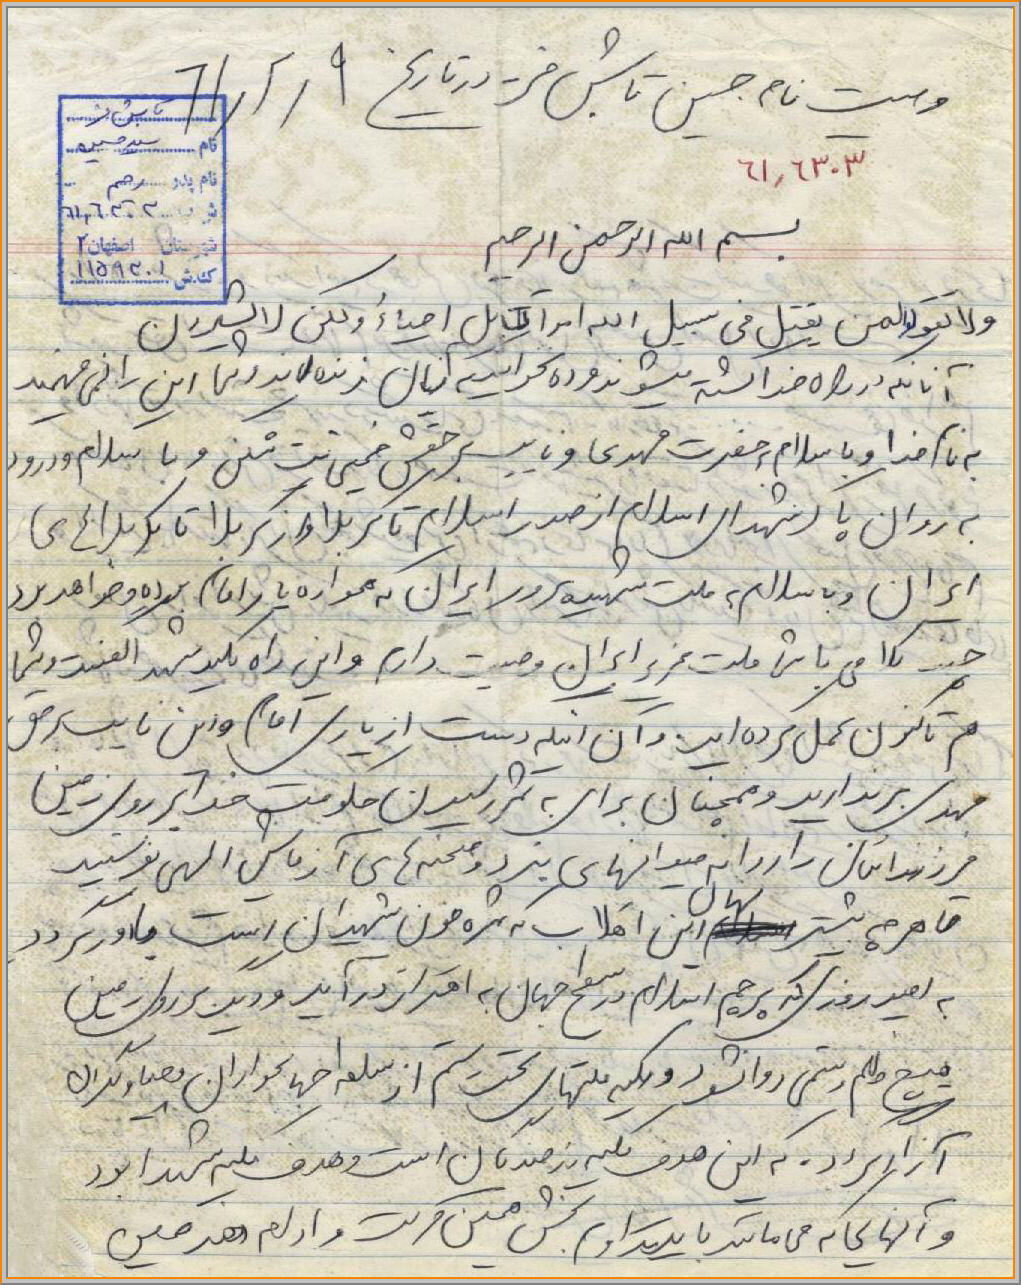 وصیت نامه حسین تابش فر در تاریخ ۶۱/۲/۹
تابش فر
نام سید حسین
نام پدر رحیم
۶۱,۶۳۰۳
شهرستان اصفهان ۲
کد بش ۱۱۵۹۳۰۱
۶۱,۶۳۰۳
بسم الله الرحمن الرحیم
ولا تقولوا لمن یقتل فی سبیل الله امواتا بل احیاء ولکن لا تشعرون
آنانکه در راه خدا کشته میشوند مرده نخوانید آنان زنده اند و شما این را نمی فهمید
به نام خدا و با سلام بر حضرت مهدی و نایب بر حقش خمینی بت شکن و با سلام و درود
به روان پاک شهدای اسلام از صدر اسلام تا کربلا و از کربلا تا کربلاهای
ایران و با سلام بر ملت شهید پرور ایران که همواره یار امام بوده و خواهد بود
چند کلامی با شما ملت عزیز ایران وصیت دارم و این راه کلیه شهدا گفتند و شما
هم تاکنون عمل کرده اید و آن اینکه دست از یاری امام و این نایب بر حق
مهدی برندارید و همچنان برای به ثمر رسیدن حکومت خدا بر روی زمین
فرزندانتان را روانه میدانهای نبرد و صحنه های آزمایش الهی بفرستید
تا هر چه بیشتر نهال این انقلاب که ثمره خون شهیدان است بارور گردد
به امید روزی که پرچم اسلام در سطح جهان به اهتزاز در آید و دیگر بر روی زمین
هیچ ظلم و ستمی روا نشود و کلیه ملتهای تحت ستم از سلطه جهانخواران
آزاد گردند که این هدف کلیه رزمندگان است و هدف کلیه شهدا بود
و آنهائیکه می مانند باید تداوم بخش همین حرکت و ادامه دهنده همین